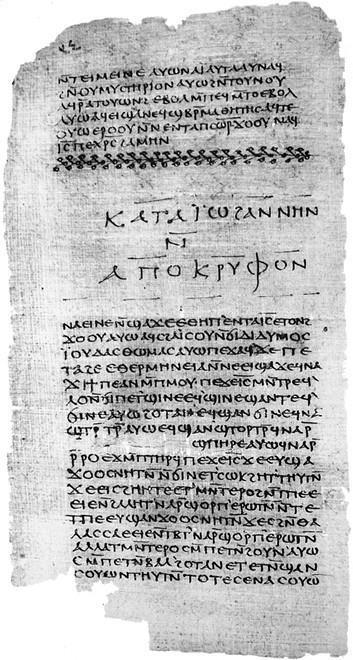 ⲛⲧⲉⲓⲙⲉⲓⲛⲉ ⲁⲩⲱ ⲛⲁⲓ ⲁⲩⲧⲁⲁⲩ ⲛⲁϥ
ϩⲛⲛⲟⲩⲙⲩⲥⲧⲏⲣⲓⲟⲛ ⲁⲩⲱ ϩⲛ̄ⲧⲟⲩⲛⲟⲩ
ⲁϥⲣⲁⲧⲟⲩⲱⲛϩ ⲉⲃⲟⲗ ⲙ̄ⲡⲉϥⲙ̄ⲧⲟ ⲉⲃⲟⲗ
ⲁⲩⲱ ⲁϥⲉⲓ ϣⲁⲛⲉϥϣⲃⲣ̄ⲙⲁⲑⲏⲧⲏⲥ ⲁϥⲧⲉ
ⲟⲩⲱ ⲉⲣⲟⲟⲩ ⲛ̄ⲛⲉⲛⲧⲁⲡⲥⲱ̅ⲣ̅ ϫⲟⲟⲩ ⲛⲁϥ
ⲓ̅ⲥ̅ ⲡⲉⲭ̅ⲣ̅ⲥ̅ ϩⲁⲙⲏⲛ
ⲕⲁⲧⲁ ⲓ̈ⲱϩⲁⲛⲛⲏⲛ
ⲛ̄
ⲁⲡⲟⲕⲣⲩⲫⲟⲛ
ⲛⲁⲉⲓ ⲛⲉ ⲛ̄ϣⲁϫⲉ ⲉⲑⲏⲡ ⲉⲛⲧⲁⲓ̅ⲥ̅ ⲉⲧⲟⲛϩ
ϫⲟⲟⲩ ⲁⲩⲱ ⲁϥⲥϩⲁⲓⲥⲟⲩ ⲛ̄ϭⲓ ⲇⲓⲇⲩⲙⲟⲥ
ⲓ̈ⲟⲩⲇⲁⲥ ⲑⲱⲙⲁⲥ ⲁⲩⲱ ⲡⲉϫⲁϥ ϫⲉ ⲡⲉ
ⲧⲁϩⲉ ⲉⲑⲉⲣⲙⲏⲛⲉⲓⲁ ⲛ̄ⲛⲉⲉⲓϣⲁϫⲉ ϥⲛⲁ
ϫⲓ ϯⲡⲉ ⲁⲛ ⲙ̄ⲡⲙⲟⲩ ⲡⲉϫⲉ ⲓ̅ⲥ̅ ⲙⲛ̄ⲧⲣⲉϥ
ⲗⲟ ⲛ̄ϭⲓ ⲡⲉⲧϣⲓⲛⲉ ⲉϥϣⲓⲛⲉ ϣⲁⲛⲧⲉϥ
ϭⲓⲛⲉ ⲁⲩⲱ ϩⲟⲧⲁⲛ ⲉϥϣⲁⲛϭⲓⲛⲉ ϥⲛⲁ
ϣⲧⲣ̄ⲧⲣ̄ ⲁⲩⲱ ⲉϥϣⲁⲛϣⲧⲟⲣⲧⲣ̄ ϥⲛⲁⲣ̄
ϣⲡⲏⲣⲉ ⲁⲩⲱ ϥⲛⲁⲣ̄
ⲣ̄ⲣⲟ ⲉϫⲙ̄ ⲡⲧⲏⲣϥ ⲡⲉϫⲉ ⲓ̅ⲥ̅ ϫⲉ ⲉⲩϣⲁ
ϫⲟⲟⲥ ⲛⲏⲧⲛ̄ ⲛ̄ϭⲓ ⲛⲉⲧⲥⲱⲕ ϩⲏⲧ ⲑⲩⲧⲛ̄
ϫⲉ ⲉⲓⲥϩⲏⲏⲧⲉ ⲉⲧⲙⲛ̄ⲧⲉⲣⲟ ϩⲛ̄ ⲧⲡⲉ ⲉ
ⲉⲓⲉ ⲛ̄ϩⲁⲗⲏⲧ ⲛⲁⲣ̄ ϣⲟⲣⲡ ⲉⲣⲱⲧⲛ̄ ⲛ̄ⲧⲉ
ⲧⲡⲉ ⲉⲩϣⲁⲛϫⲟⲟⲥ ⲛⲏⲧⲛ̄ ϫⲉ ⲥϩⲛ̄ ⲑⲁ
ⲗⲁⲥⲥⲁ ⲉⲉⲓⲉ ⲛ̄ⲧⲃⲧ ⲛⲁⲣ̄ ϣⲟⲣⲡ ⲉⲣⲱⲧⲛ̄
ⲁⲗⲗⲁ ⲧⲙⲛ̄ⲧⲉⲣⲟ ⲥⲙ̄ⲡⲉⲧⲛ̄ϩⲟⲩⲛ ⲁⲩⲱ
ⲥⲙ̄ⲡⲉⲧⲛ̄ⲃⲁⲗ ϩⲟⲧⲁⲛ ⲉⲧⲉⲧⲛ̄ϣⲁⲛ
ⲥⲟⲩⲱⲛ ⲧⲏⲩⲧⲛ̄ ⲧⲟⲧⲉ ⲥⲉⲛⲁⲥⲟⲩⲱ